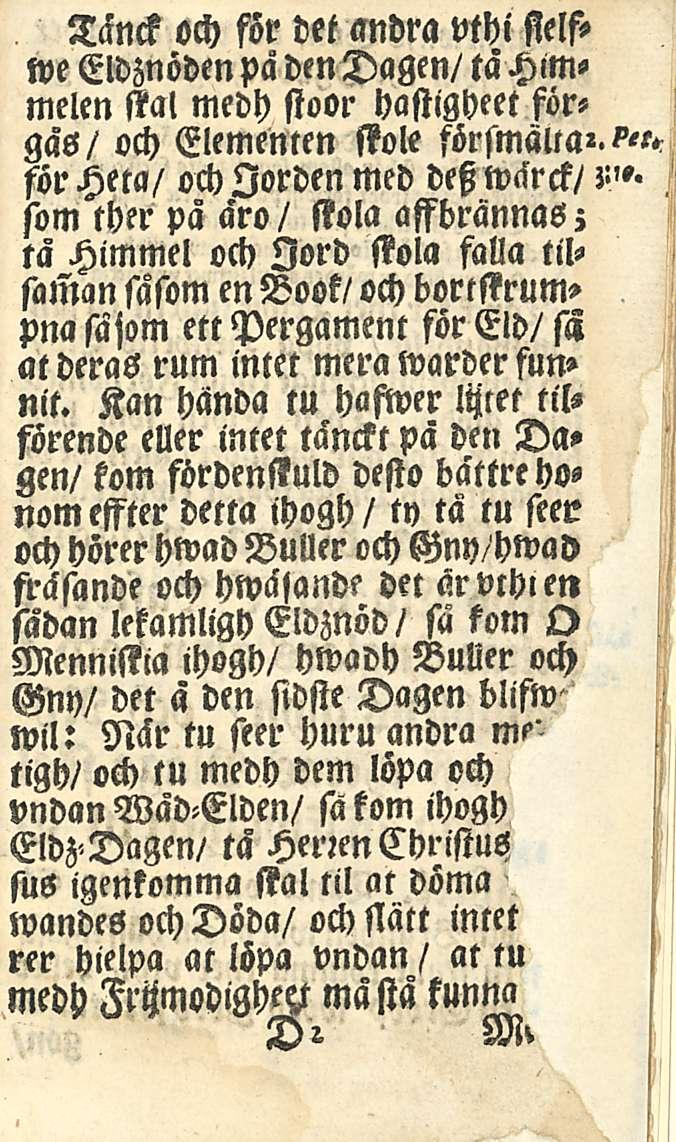 Tänck och för det andra vthi sielf-
we Eldznöden på den Dagen/ tå Him-
melen skal medh stoor hastigheet för-
gås/ och Elementen skole försmälta 2. Pet.
för Heta/ och Jorden med deß wärck/ 3:10.
som ther på äro/ skola affbrännas;
tå Himmel och Jord skola falla til-
sam̃an såsom en Book/ och bortskrum-
pna såsom ett Pergament för Eld/ så
at deras rum intet mera warder fun-
nit. Kan hända tu hafwer lijtet til-
förende eller intet tänckt på den Da-
gen/ kom fördenskuld desto bättre ho-
nom effter detta ihogh/ ty tå tu seer
och hörer hwad Buller och Gny/hwad
fräsande och hwäsande det är vthi en
sådan lekamligh Eldznöd/ så kom O
Menniskia ihogh/ hwadh Buller och
Gny/ det å den sidste Dagen blifw
wil: När tu seer huru andra me
tigh/ och tu medh dem löpa och
vndan Wåd-Elden/ så kom ihogh
Eldz-Dagen/ tå Herren Christus
sus igenkomma skal til at döma
wandes och Döda/ och slätt intet
rer hielpa at löpa vndan/ at tu
medh Frijmodigheet må stå kunna
D 2 M